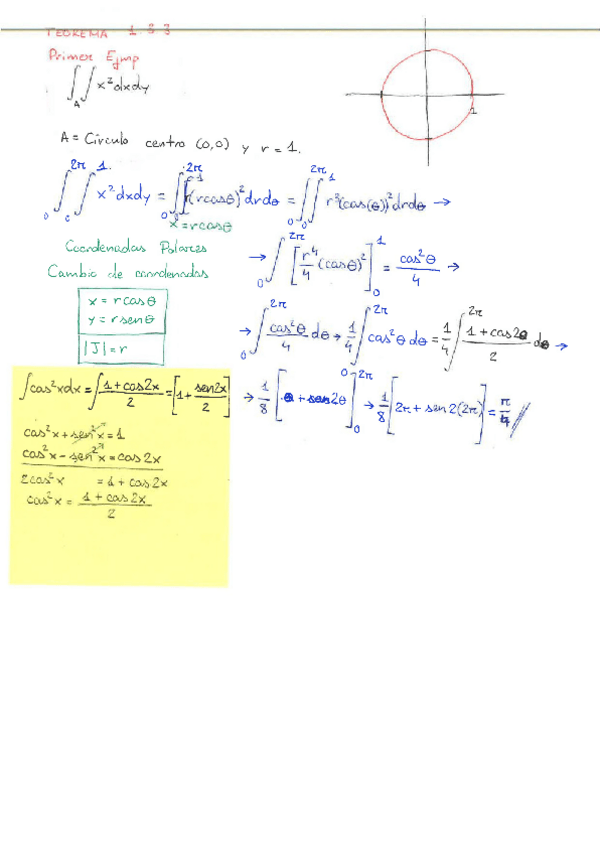 TEOREMA 1.8.3
Primer Ejmp
∫∫_A x²dxdy
1
A = Círculo centro (0,0) y r = 1.
∫₀^{2π} ∫₀^{1} x²dxdy = ∫₀^{2π} ∫₀^{1} r(rcosθ)²drdθ = ∫₀^{2π} ∫₀^{1} r³(cos(θ))²drdθ →
x = rcosθ
Coordenadas Polares
Cambio de coordenadas
x = rcosθ
y = rsenθ
|J| = r
→ ∫₀^{2π} [r⁴/4 (cosθ)²]₀^{1} = cos²θ/4 →
→ ∫₀^{2π} cos²θ/4 dθ → 1/4 ∫₀^{2π} cos²θdθ = 1/4 ∫₀^{2π} (1+cos2θ)/2 dθ →
∫cos²xdx = ∫(1+cos2x)/2 = [1+ sen2x/2]
→ 1/8 [θ + sen2θ]₀^{2π} → 1/8 [2π + sen2(2π)] = π/4 //
cos²x + sen²x = 1
cos²x − sen²x = cos2x
2cos²x = 1 + cos2x
cos²x = (1 + cos2x)/2